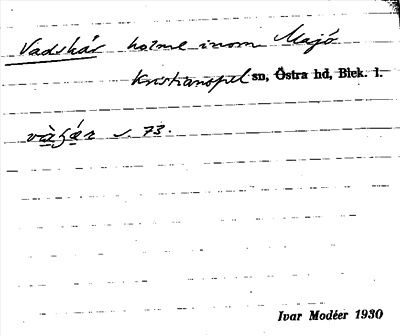 Vadskär holme inom Majö
Kristianopel sn, Östra hd, Blek. l.
s. 73.
Ivar Modéer 1930